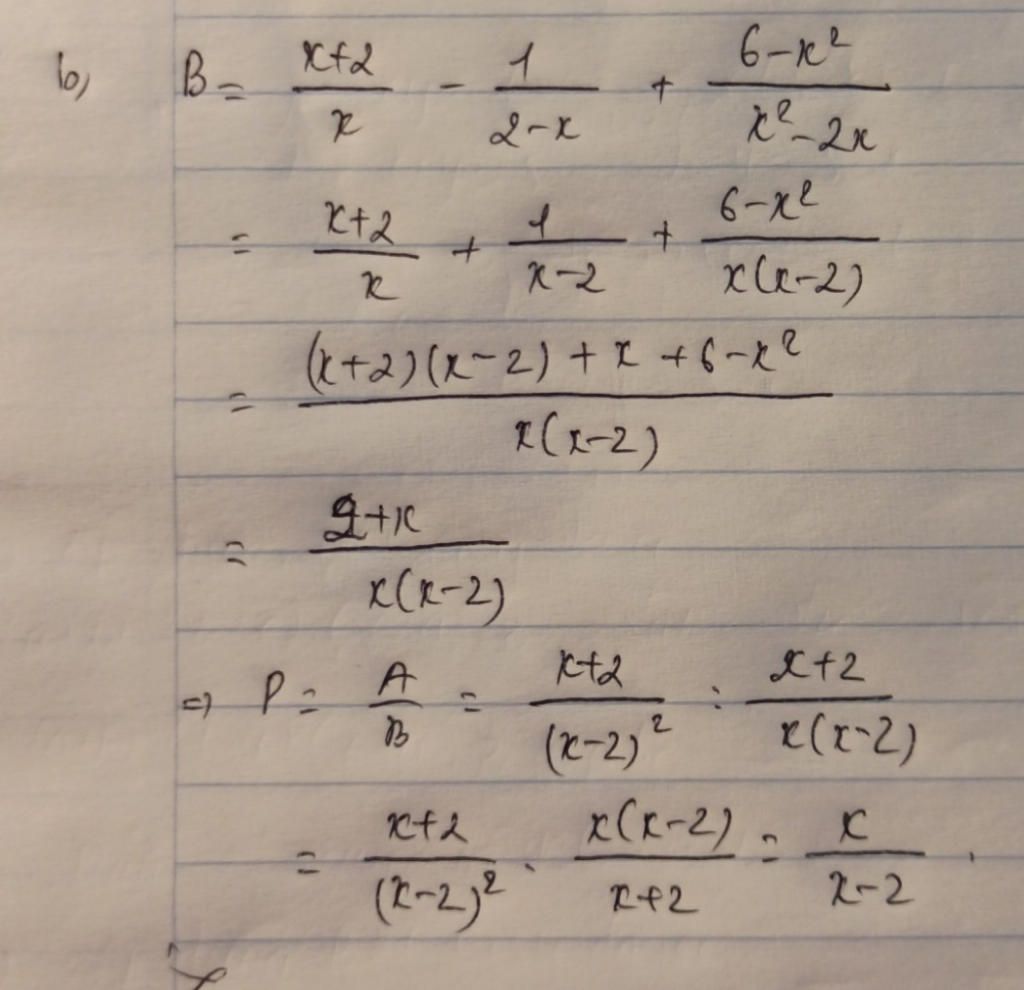 b, B = \frac{x+2}{x} - \frac{1}{2-x} + \frac{6-x^2}{x^2-2x}
= \frac{x+2}{x} + \frac{1}{x-2} + \frac{6-x^2}{x(x-2)}
= \frac{(x+2)(x-2)+x+6-x^2}{x(x-2)}
= \frac{2+x}{x(x-2)}
=> P = \frac{A}{B} = \frac{x+2}{(x-2)^2} : \frac{x+2}{x(x-2)}
= \frac{x+2}{(x-2)^2} . \frac{x(x-2)}{x+2} = \frac{x}{x-2} .